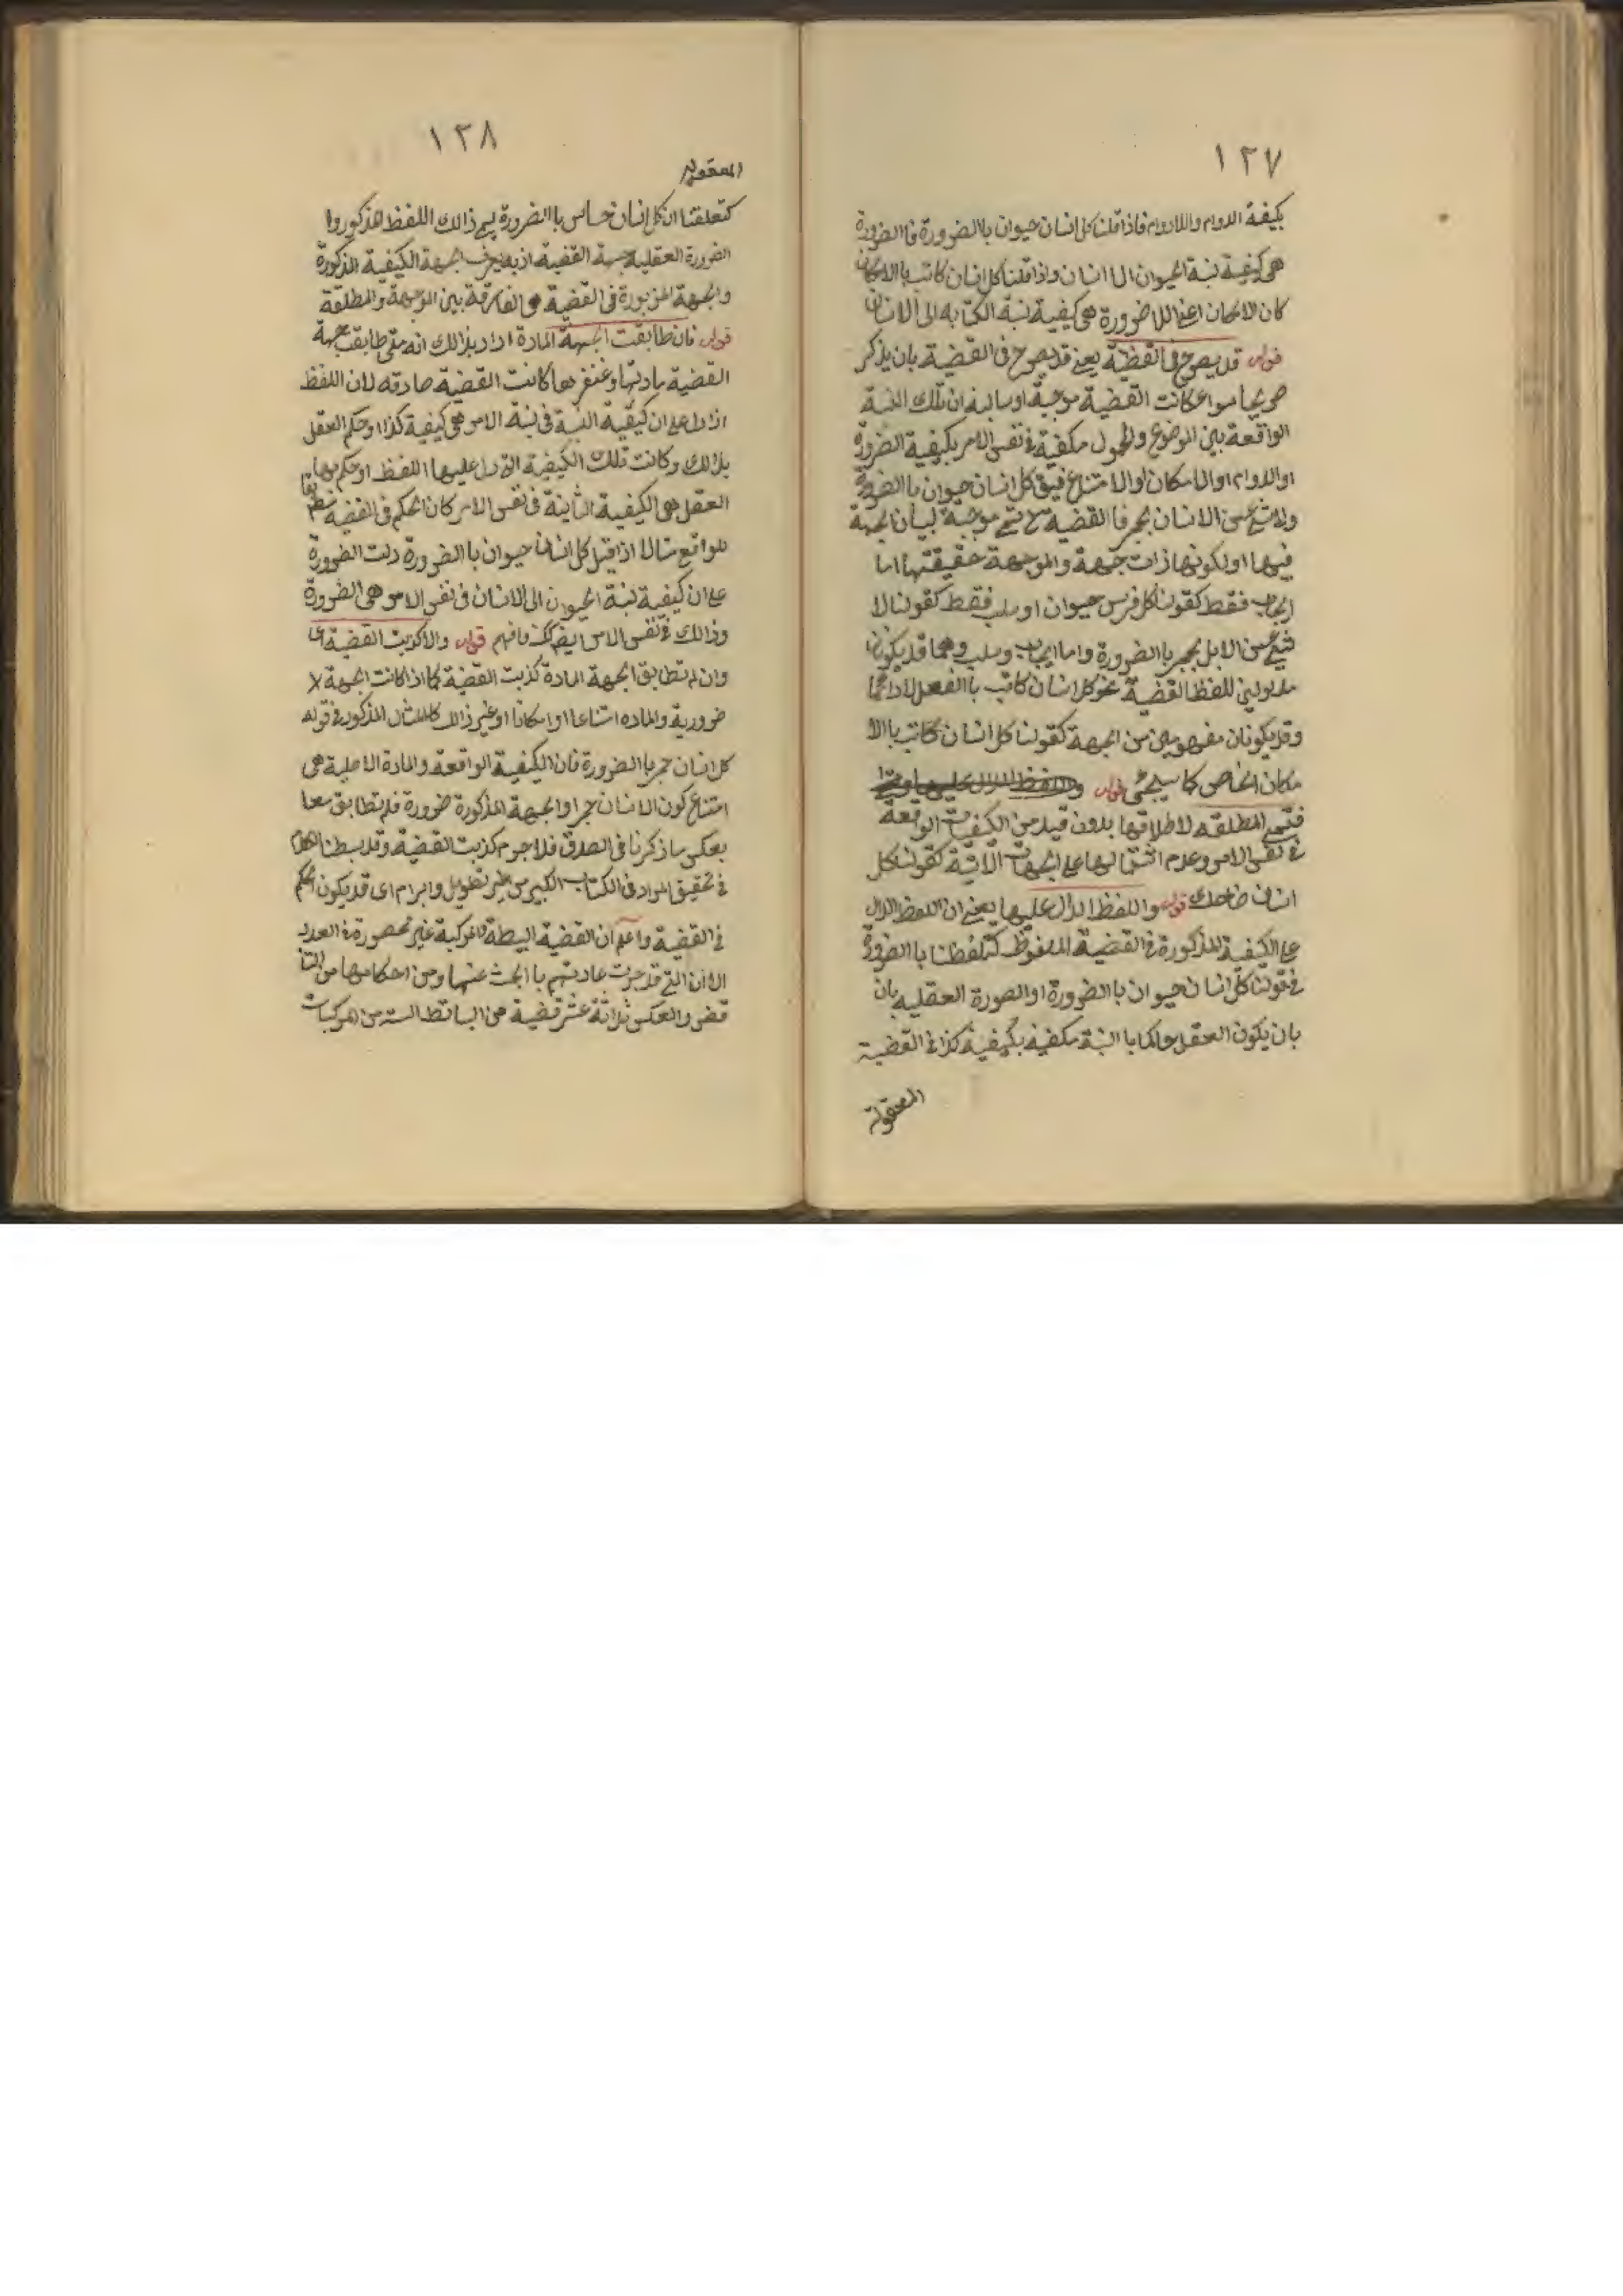 ١٢٧
بكيفة الدوام واللادوام فاذا قلنا كل انسان حيوان باالضرورة فاالضرورة
هى كيفية نسبة الحيوان الى انسان واذا قلنا كل انسان كاتب باالامكان
كان الامكان اعنى اللا ضرورة هى كيفية نسبة الكتابه الى الانسان
قوله قد يصرح فى القضية يعنى قد يصرح فى القضية بان يذكر
صريحا سواء كانت القضية موجبة او سالبة ان تلك النسبة
الواقعة بين الموضوع والمحمول مكيفة فى نفس الامر بكيفية الضرورة
او الدوام او الامكان او الامتناع فيق كل انسان حيوان باالضرورة
ولا شئ من الانسان بحجر فا القضية ح تسمى موجهة لبيان الجهة
فيها او لكونها ذات جهة والموجهة حقيقتها اما
ايجاب فقط كقولنا كل فرس حيوان او سلب فقط كقولنا لا
شئ من الابل بحجر باالضرورة واما ايجاب وسلب وهما قد يكونان
مدلولين للفظ القضية نحو كل انسان كاتب باالفعل لا دائما
وقد يكونان مفهومين من الجهة كقولنا كل انسان كاتب باالا
مكان الخاص كما سيجئ قوله واللفظ الدال عليها
فتسمى المطلقه لاطلاقها بدون قيد من الكيفيات الواقعة
فى نفس الامر وعدم اشتمالها على الجهات الآتية كقولنا كل
انسان ضاحك قوله واللفظ الدال عليها يعنى ان اللفظ الدال
على الكيفية المذكورة فى القضية الملفوظ كتلفظنا باالضرورة
فى قولنا كل انسان حيوان باالضرورة او الصورة العقليه بان
بان يكون العقل حاكما باالنسبة مكيفية بكيفية كذا فى القضية
المعقولة
١٢٨
المعقولة
كتعلقنا ان كل انسان حساس باالضرورة يسمى ذالك اللفظ المذكور وا
الضرورة العقلية جهة القضية اذ به يعرف الجهة الكيفية المذكورة
والجهة المزبورة فى القضية هى الفارقة بين الموجهة والمطلقة
قوله فان طابقت الجهة المادة اراد بذالك انه متى طابقت جهة
القضية مادتها وعنصرها كانت القضية صادقه لان اللفظ
اذا دل على ان كيفية النسبة فى نسبة الامر هى كيفية كذا او حكم العقل
بذالك وكانت تلك الكيفية التى دل عليها اللفظ او حكم بها
العقل هى الكيفية الثابتة فى نفس الامر كان الحكم فى القضية مطابقا
للواقع مثالا اذا قيل كل انسان حيوان باالضرورة دلت الضرورة
على ان كيفية نسبة الحيوان الى الانسان فى نفس الامر هى الضرورة
وذالك فى نفس الامر ايضا كك فافهم قوله والا كذبت القضية اى
وان لم تطابق الجهة المادة كذبت القضية كما اذا كانت الجهة لا
ضرورية والماده امتناعا او امكانا او غير ذالك كالمثال المذكور فى قوله
كل انسان حجر باالضرورة فان الكيفية الواقعة والمادة الاصلية هى
امتناع كون الانسان حجرا والجهة المذكورة ضرورة فلم تطابق معا
بعكس ما ذكرنا فى الصدق فلا جرم كذبت القضية وقد بسطنا الكلام
فى تحقيق المواد فى الكتاب الكبير من غير تطويل وابرام اى قد يكون الحكم
فى القضية واعلم ان القضية البسيطة والمركبة غير محصورة فى العدد
الا ان التى قد جرت عادتهم باالبحث عنها وعن احكامها من التنا
قض والعكس ثلاثة عشر قضية من البسائط الستة من المركبات